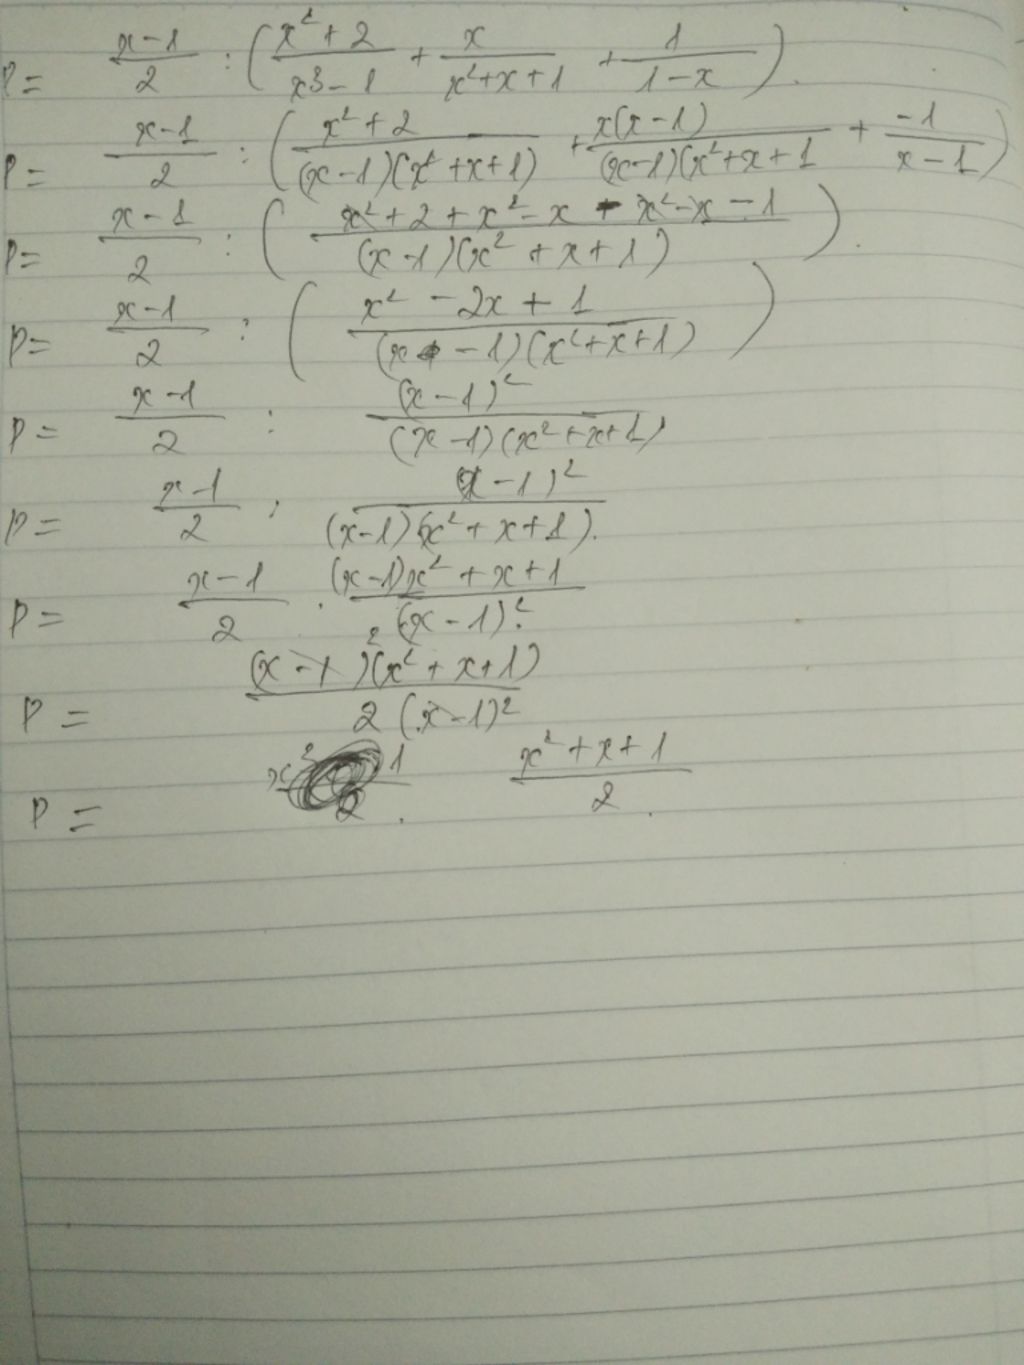 P = \frac{x-1}{2} : ( \frac{x^2+2}{x^3-1} + \frac{x}{x^2+x+1} + \frac{1}{1-x} ).
P = \frac{x-1}{2} : ( \frac{x^2+2}{(x-1)(x^2+x+1)} + \frac{x(x-1)}{(x-1)(x^2+x+1} + \frac{-1}{x-1} )
P = \frac{x-1}{2} : ( \frac{x^2+2+x^2-x-x^2-x-1}{(x-1)(x^2+x+1)} ).
P = \frac{x-1}{2} : ( \frac{x^2-2x+1}{(x-1)(x^2+x+1)} )
P = \frac{x-1}{2} : \frac{(x-1)^2}{(x-1)(x^2+x+1)}
P = \frac{x-1}{2} : \frac{(x-1)^2}{(x-1)(x^2+x+1)}.
P = \frac{x-1}{2} . \frac{(x-1)x^2+x+1}{(x-1)^2}
P = \frac{(x-1)^2(x^2+x+1)}{2(x-1)^2}
P = \frac{x^2+x+1}{2}.